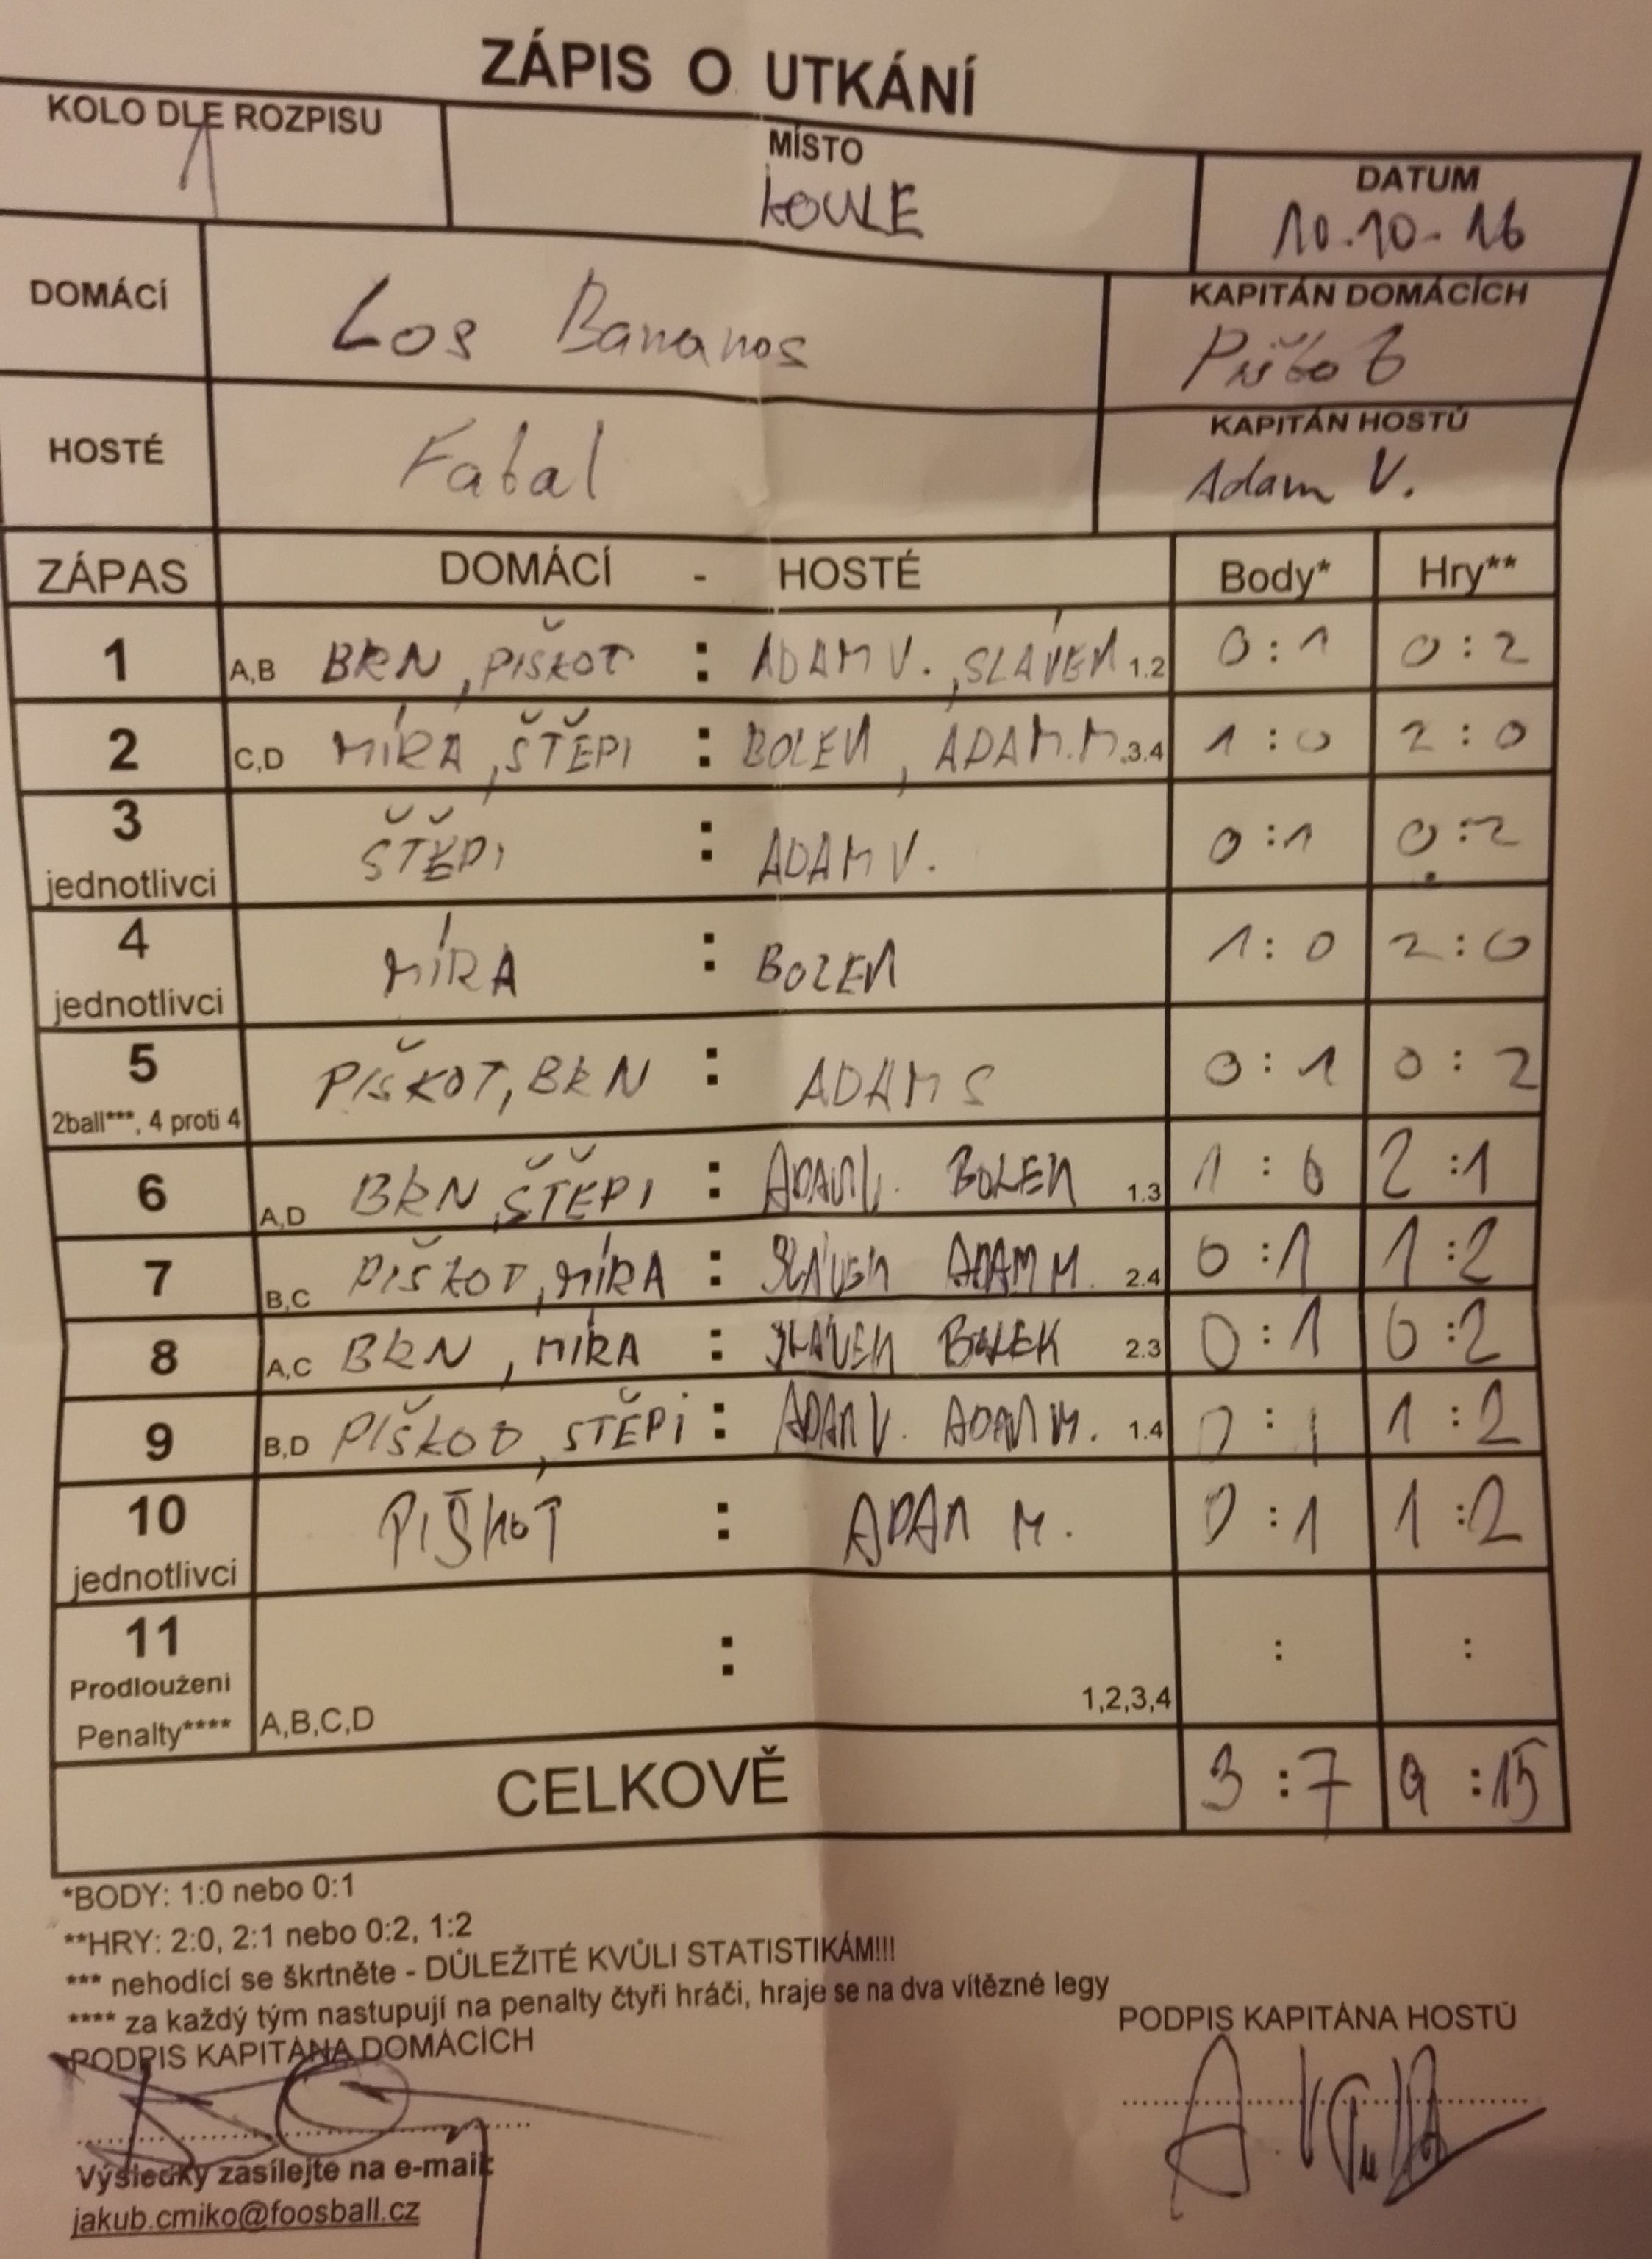 ZÁPIS O UTKÁNÍ
KOLO DLE ROZPISU
1
MÍSTO
KOULE
DATUM
10.10.16
DOMÁCÍ
Los Bananos
KAPITÁN DOMÁCÍCH
HOSTÉ
Fatal
KAPITÁN HOSTŮ
Adam V.
ZÁPAS DOMÁCÍ - HOSTÉ Body* Hry**
1 A,B BRN, PIŠKOT : ADAM V., SLÁVEK 1.2 0:1 0:2
2 C,D MÍRA, ŠTĚPI : BOLEK, ADAM.M. 3.4 1:0 2:0
3 jednotlivci ŠTĚPI : ADAM V. 0:1 0:2
4 jednotlivci MÍRA : BOLEK 1:0 2:0
5 2ball***, 4 proti 4 PIŠKOT, BRN : ADAM S 0:1 0:2
6 A,D BRN, ŠTĚPI : ADAM V. BOLEK 1.3 1:0 2:1
7 B,C PIŠKOT, MÍRA : SLÁVEK ADAM M. 2.4 0:1 1:2
8 A,C BRN, MÍRA : SLÁVEK BOLEK 2.3 0:1 0:2
9 B,D PIŠKOT, ŠTĚPI : ADAM V. ADAM M. 1.4 0:1 1:2
10 jednotlivci PIŠKOT : ADAM M. 0:1 1:2
11 Prodloužení Penalty**** A,B,C,D : 1,2,3,4 : :
CELKOVĚ 3:7 9:15
*BODY: 1:0 nebo 0:1
**HRY: 2:0, 2:1 nebo 0:2, 1:2
*** nehodící se škrtněte - DŮLEŽITÉ KVŮLI STATISTIKÁM!!!
**** za každý tým nastupují na penalty čtyři hráči, hraje se na dva vítězné legy
PODPIS KAPITÁNA DOMÁCÍCH
PODPIS KAPITÁNA HOSTŮ
Výsledky zasílejte na e-mail:
jakub.cmiko@foosball.cz